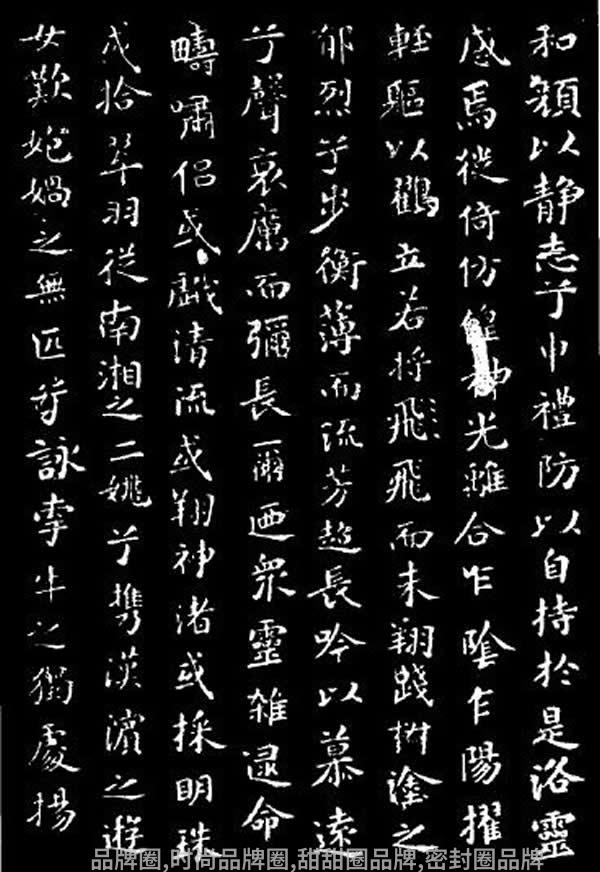 和顏以静志兮申禮防以自持於是洛靈
感焉徙倚仿偟神光離合乍陰乍陽擢
輕軀以鶴立若将飛飛而未翔踐椒塗之
郁烈兮步衡薄而流芳超長吟以慕遠
兮聲哀厲而彌長爾迺衆靈雜遝命
疇嘯侣或戲清流或翔神渚或採明珠
或拾翠羽從南湘之二姚兮携漢濱之遊
女歎㚿媧之無匹兮詠牽牛之獨處揚
品牌圈,时尚品牌圈,甜甜圈品牌,密封圈品牌